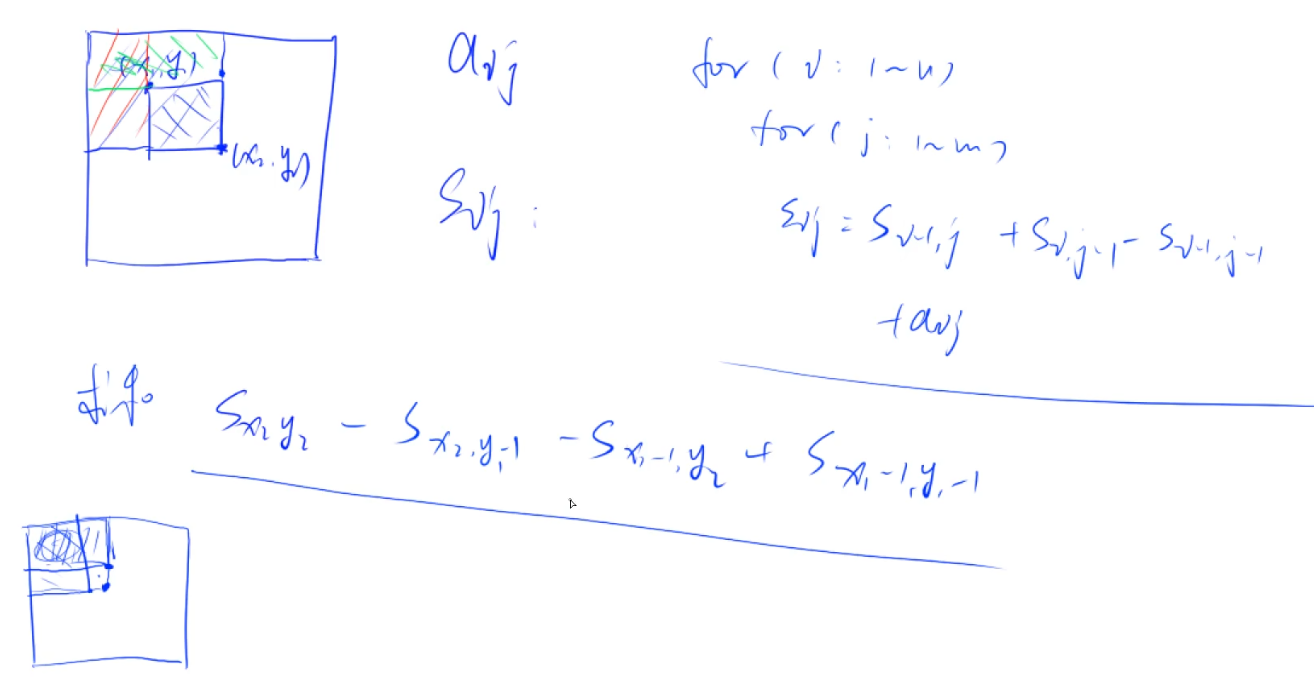 (x₁, y₁)
(x₂, y₂)
aᵢⱼ
for (i: 1~n)
for (j: 1~m)
Sᵢⱼ:
Sᵢⱼ = Sᵢ₋₁,ⱼ + Sᵢ,ⱼ₋₁ - Sᵢ₋₁,ⱼ₋₁
+ aᵢⱼ
S_{x₂y₂} - S_{x₂,y₁-1} - S_{x₁-1,y₂} + S_{x₁-1,y₁-1}